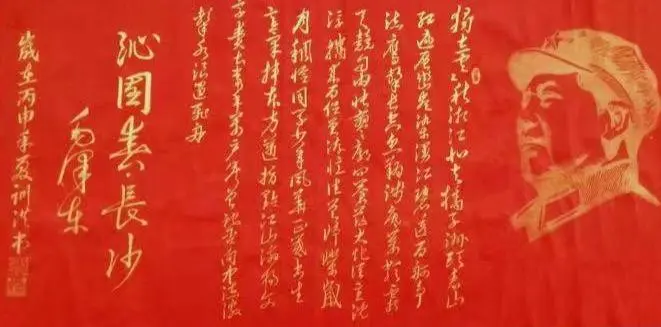 独立寒秋湘江北去橘子洲頭看万山
红遍层林尽染漫江碧透百舸争
流鹰擊长空鱼翔浅底萬類霜天
竞自由怅寥廓问苍茫大地谁主沉
浮携来百侣曾游忆往昔峥嵘歲
月稠恰同学少年风華正茂书生
意气挥斥方遒指點江山激扬文
字粪土当年万户侯曾记否到中流
擊水浪遏飛舟
沁園春·長沙
毛澤东
歲在丙申年夏